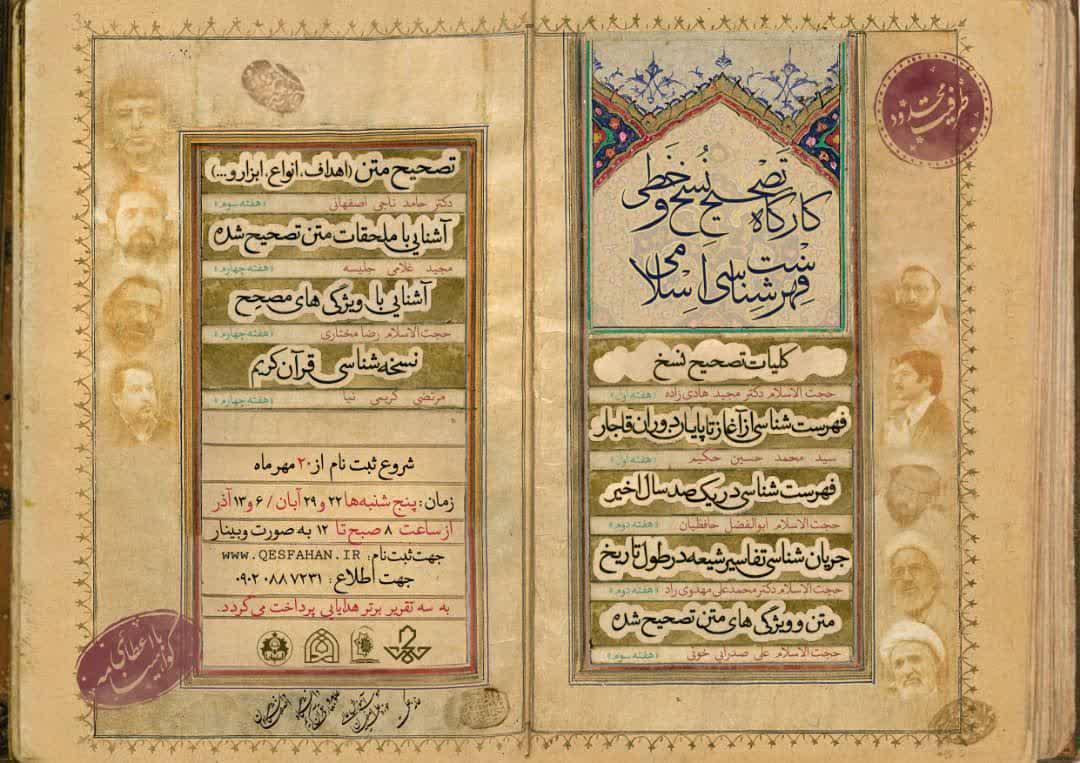 ظرفیت محدود
کارگاه تصحیح نسخ خطی
و فهرست شناسی اسلامی
کلیات تصحیح نسخ
حجت الاسلام دکتر مجید هادی زاده «هفته اول»
فهرست شناسی از آغاز تا پایان دوران قاجار
سید محمد حسین حکیم «هفته اول»
فهرست شناسی در یک صد سال اخیر
حجت الاسلام ابوالفضل حافظیان «هفته دوم»
جریان شناسی تفاسیر شیعه در طول تاریخ
حجت الاسلام دکتر محمدعلی مهدوی راد «هفته دوم»
متن و ویژگی های متن تصحیح شده
حجت الاسلام علی صدرائی خوئی «هفته سوم»
تصحیح متن (اهداف، انواع، ابزار و...)
دکتر حامد ناجی اصفهانی «هفته سوم»
آشنایی با ملحقات متن تصحیح شده
مجید غلامی جلیسه «هفته چهارم»
آشنایی با ویژگی های مصحح
حجت الاسلام رضا مختاری «هفته چهارم»
نسخه شناسی قرآن کریم
مرتضی کریمی نیا «هفته چهارم»
شروع ثبت نام از ۲۰ مهرماه
زمان: پنج شنبه‌ها ۲۲ و ۲۹ آبان / ۶ و ۱۳ آذر
از ساعت ۸ صبح تا ۱۲ به صورت وبینار
جهت ثبت نام: WWW.QESFAHAN.IR
جهت اطلاع: ۰۹۰۲ ۰۸۸ ۷۲۳۱
به سه تقریر برتر هدایایی پرداخت می گردد.
با اعطای
گواهینامه